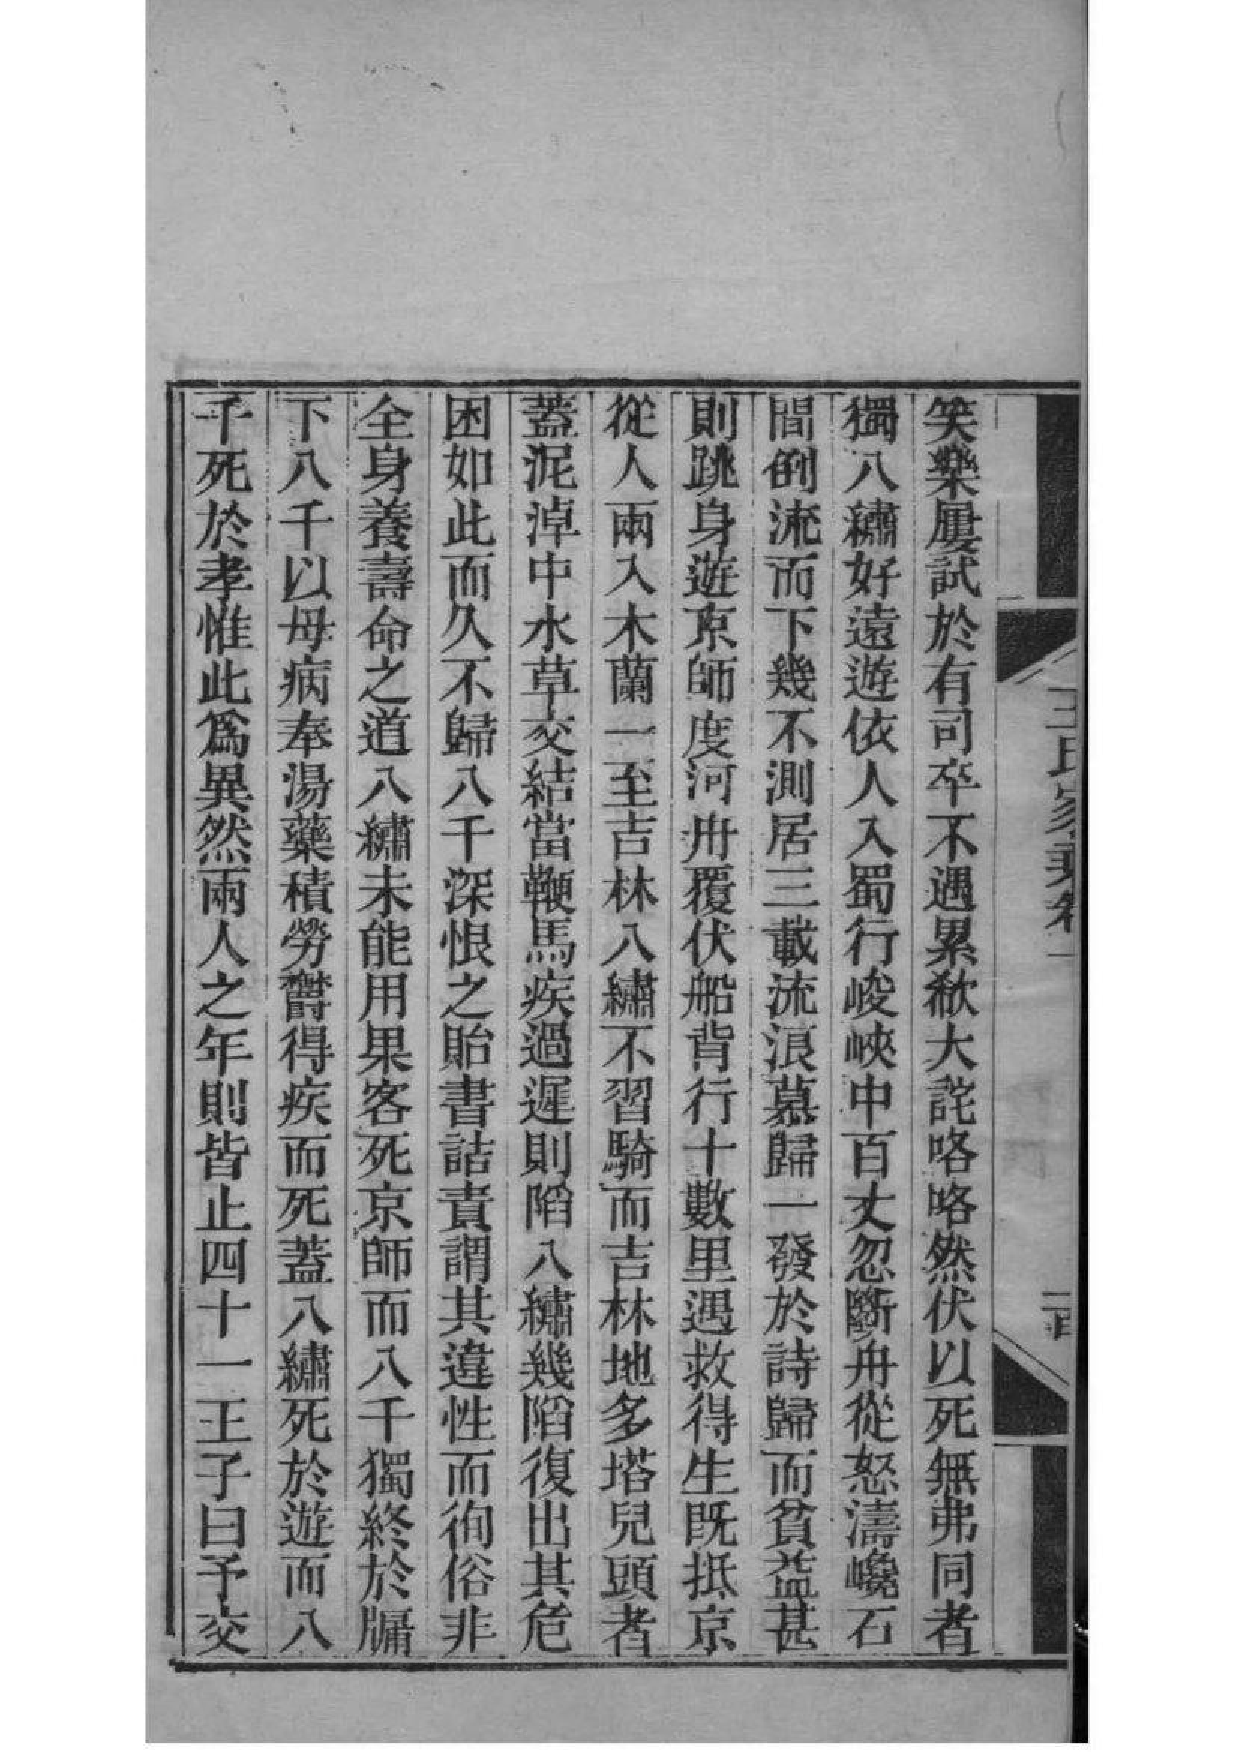 王氏家乘卷一
笑樂屢試於有司卒不遇累欷大詫咯咯然伏以死無弗同者
獨八繡好遠遊依人入蜀行峻峽中百丈忽斷舟從怒濤巉石
間倒流而下幾不測居三載流浪慕歸一發於詩歸而貧益甚
則跳身遊京師度河舟覆伏船背行十數里遇救得生既抵京
從人兩入木蘭一至吉林八繡不習騎而吉林地多塔兒頭者
蓋泥淖中水草交結當鞭馬疾過遲則陷八繡幾陷復出其危
困如此而久不歸八千深恨之貽書詰責謂其違性而徇俗非
全身養壽命之道八繡未能用果客死京師而八千獨終於牖
下八千以母病奉湯藥積勞鬱得疾而死蓋八繡死於遊而八
千死於孝惟此爲異然兩人之年則皆止四十一王子曰予交